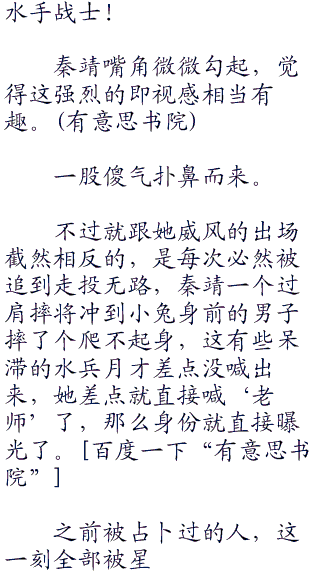 水手战士！
秦靖嘴角微微勾起，觉
得这强烈的即视感相当有
趣。(有意思书院)
一股傻气扑鼻而来。
不过就跟她威风的出场
截然相反的，是每次必然被
追到走投无路，秦靖一个过
肩摔将冲到小兔身前的男子
摔了个爬不起身，这有些呆
滞的水兵月才差点没喊出
来，她差点就直接喊‘老
师’了，那么身份就直接曝
光了。[百度一下“有意思书
院”]
之前被占卜过的人，这
一刻全部被星